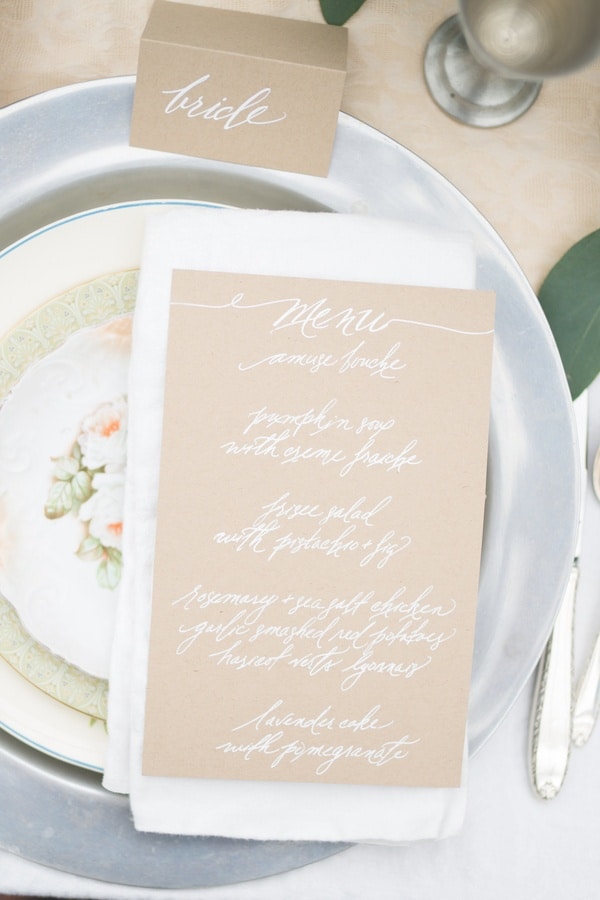 bride
menu
amuse bouche
pumpkin soup
with creme fraiche
frisee salad
with pistachio + fig
rosemary + sea salt chicken
garlic smashed red potatoes
haricot verts lyonnais
lavender cake
with pomegranate